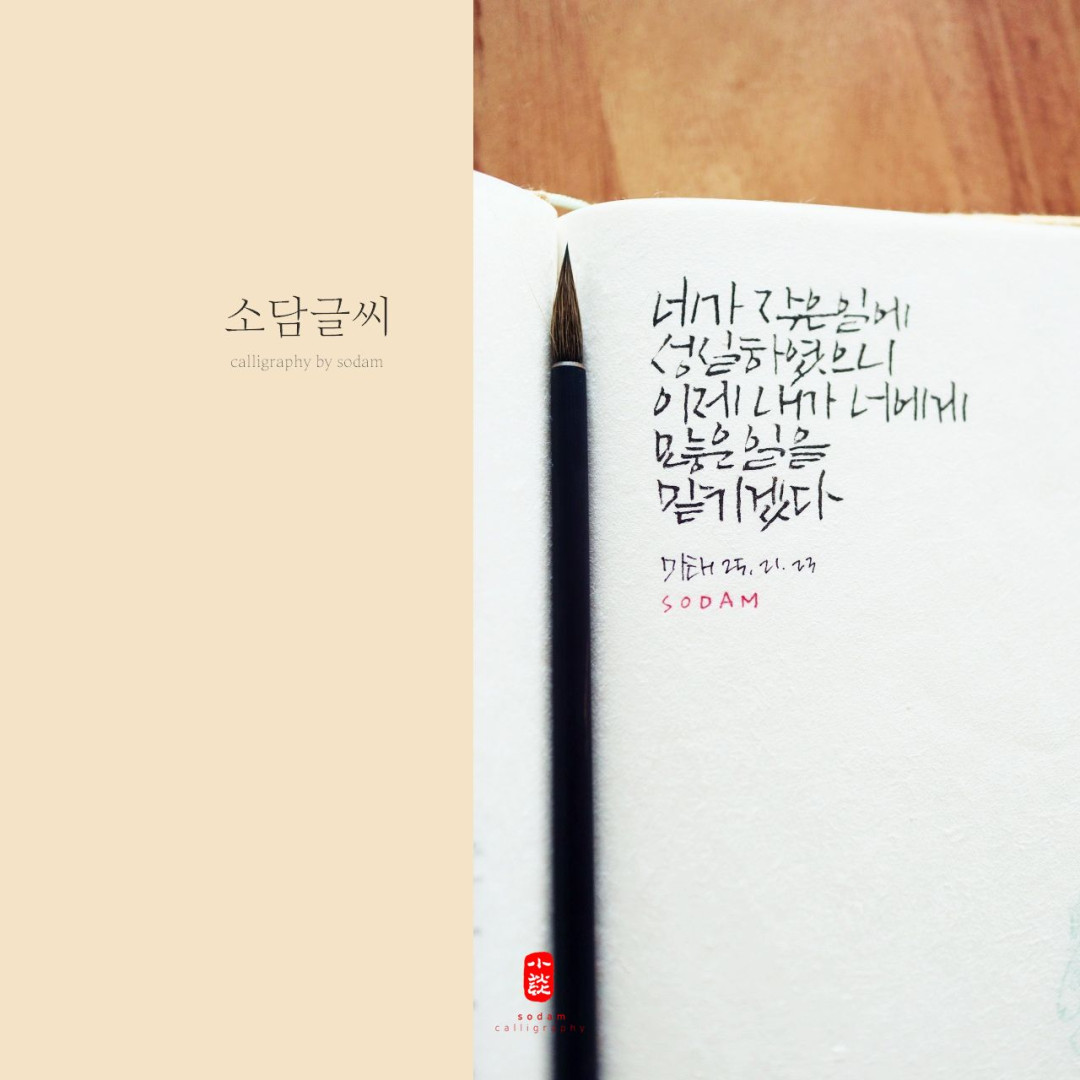 소담글씨
calligraphy by sodam
네가 작은일에
성실하였으니
이제 내가 너에게
많은 일을
맡기겠다
마태 25. 21. 23
SODAM
sodam
calligraphy